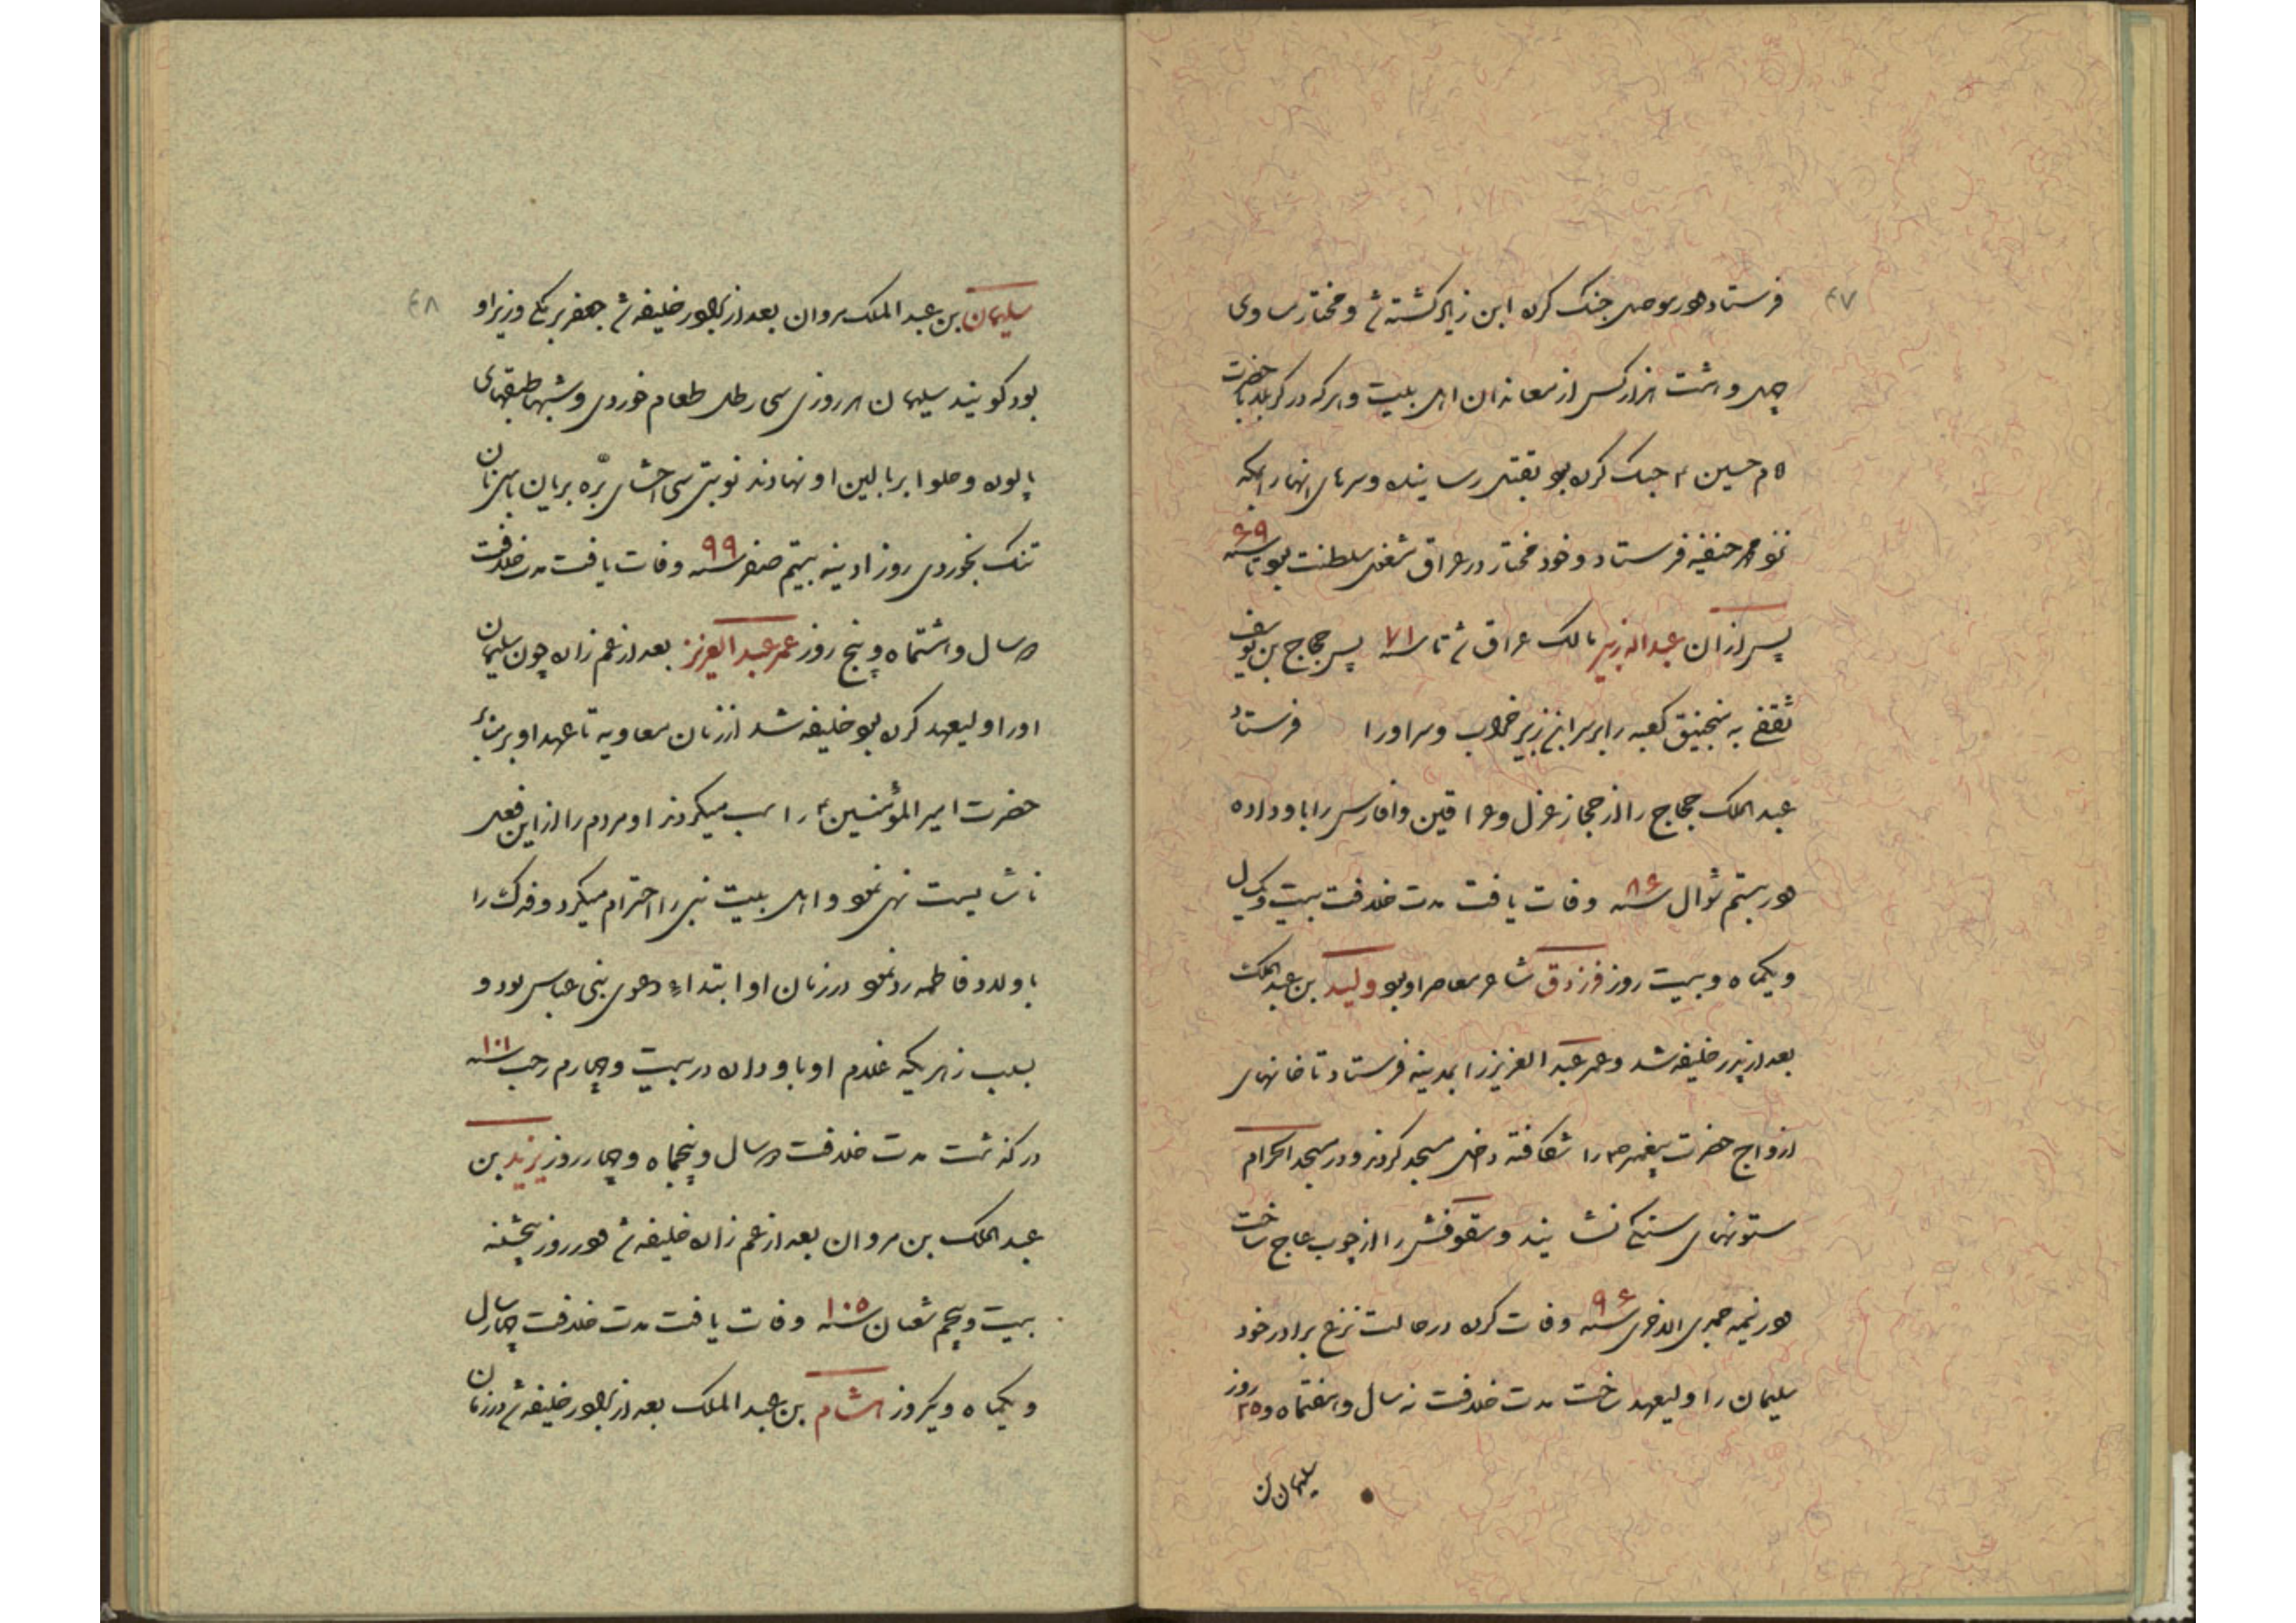 ۴۷
فرستاد در موصل جنک کرده ابن زیاد کشته شد و مختار مساوی
چهل و هشت هزار کس از معاندان اهل بیت و هرکه در کربلا با حضرت
امام حسین ع جنک کرده بود بقتل رسانیده و سرهای انها را بمکه
نزد محمد حنفیه فرستاد و خود مختار در عراق شغل سلطنت بود تا سنه ۶۹
پس از ان عبداله زبیر مالک عراق شد تا سنه ۷۱ پس حجاج بن یوسف
ثقفی به منجنیق کعبه را بر سر ابن زبیر خراب و سر او را فرستاد
عبدالملک حجاج را از حجاز عزل و عراقین و فارس را باو داده
در بیستم شوال سنه ۸۶ وفات یافت مدت خلافت بیست و یکسال
و یکماه و بیست روز فرزدق شاعر معاصر او بود ولید بن عبدالملک
بعد از پدر خلیفه شد و عمر عبد العزیز را بمدینه فرستاد تا خانهای
ازواج حضرت پیغمبر ص را شکافته داخل مسجد کردند و در مسجد الحرام
ستونهای سنکی نشانیدند و سقوفش را از چوب عاج ساخت
در نیمه جمدی الاخری سنه ۹۶ وفات کرده در حالت نزع برادر خود
سلیمان را ولیعهد ساخت مدت خلافت نه سال و هفتماه و ۲۵ روز
سلیمان بن
۴۸
سلیمان بن عبد الملک مروان بعد از برادر خلیفه شد جعفر برمکی وزیر او
بود کویند سلیمان هر روزی سی رطل طعام خوردی و شبها طبقهای
پالوده و حلوا بر بالین او نهادند نوبتی سی احشای بره بریان با سی نان
تنک بخوردی روز ادینه بیستم صفر سنه ۹۹ وفات یافت مدت خلافت
دو سال و هشتماه و پنج روز عمر عبد العزیز بعد از عم زاده چون سلیمان
او را ولیعهد کرده بود خلیفه شد از زمان معاویه تا عهد او بر منابر
حضرت امیر المؤمنین ع را سب میکردند او مردم را از این فعل
ناشایست نهی نمود و اهل بیت نبی را احترام میکرد و فدک را
باولاد فاطمه رد نمود در زمان او ابتداء دعوی بنی عباس بود و
بسبب زهریکه غلام او باو داده در بیست و چهارم رجب سنه ۱۰۱
درکذشت مدت خلافت دو سال و پنجماه و چهار روز یزید بن
عبدالملک بن مروان بعد از عم زاده خلیفه شد در روز پنجشنبه
بیست و پنجم شعبان سنه ۱۰۵ وفات یافت مدت خلافت چهار سال
و یکماه و یکروز هشام بن عبد الملک بعد از برادر خلیفه شد در زمان